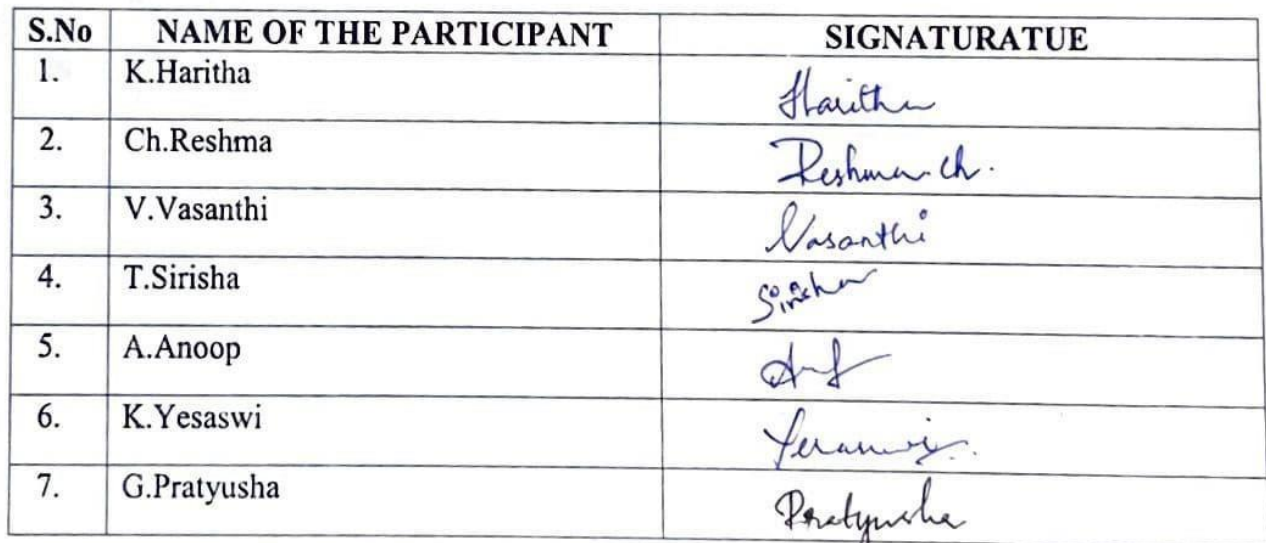 S.No NAME OF THE PARTICIPANT SIGNATURATUE
1. K.Haritha Haritha
2. Ch.Reshma Reshma.ch.
3. V.Vasanthi Vasanthi
4. T.Sirisha Sirisha
5. A.Anoop
6. K.Yesaswi
7. G.Pratyusha Pratyusha